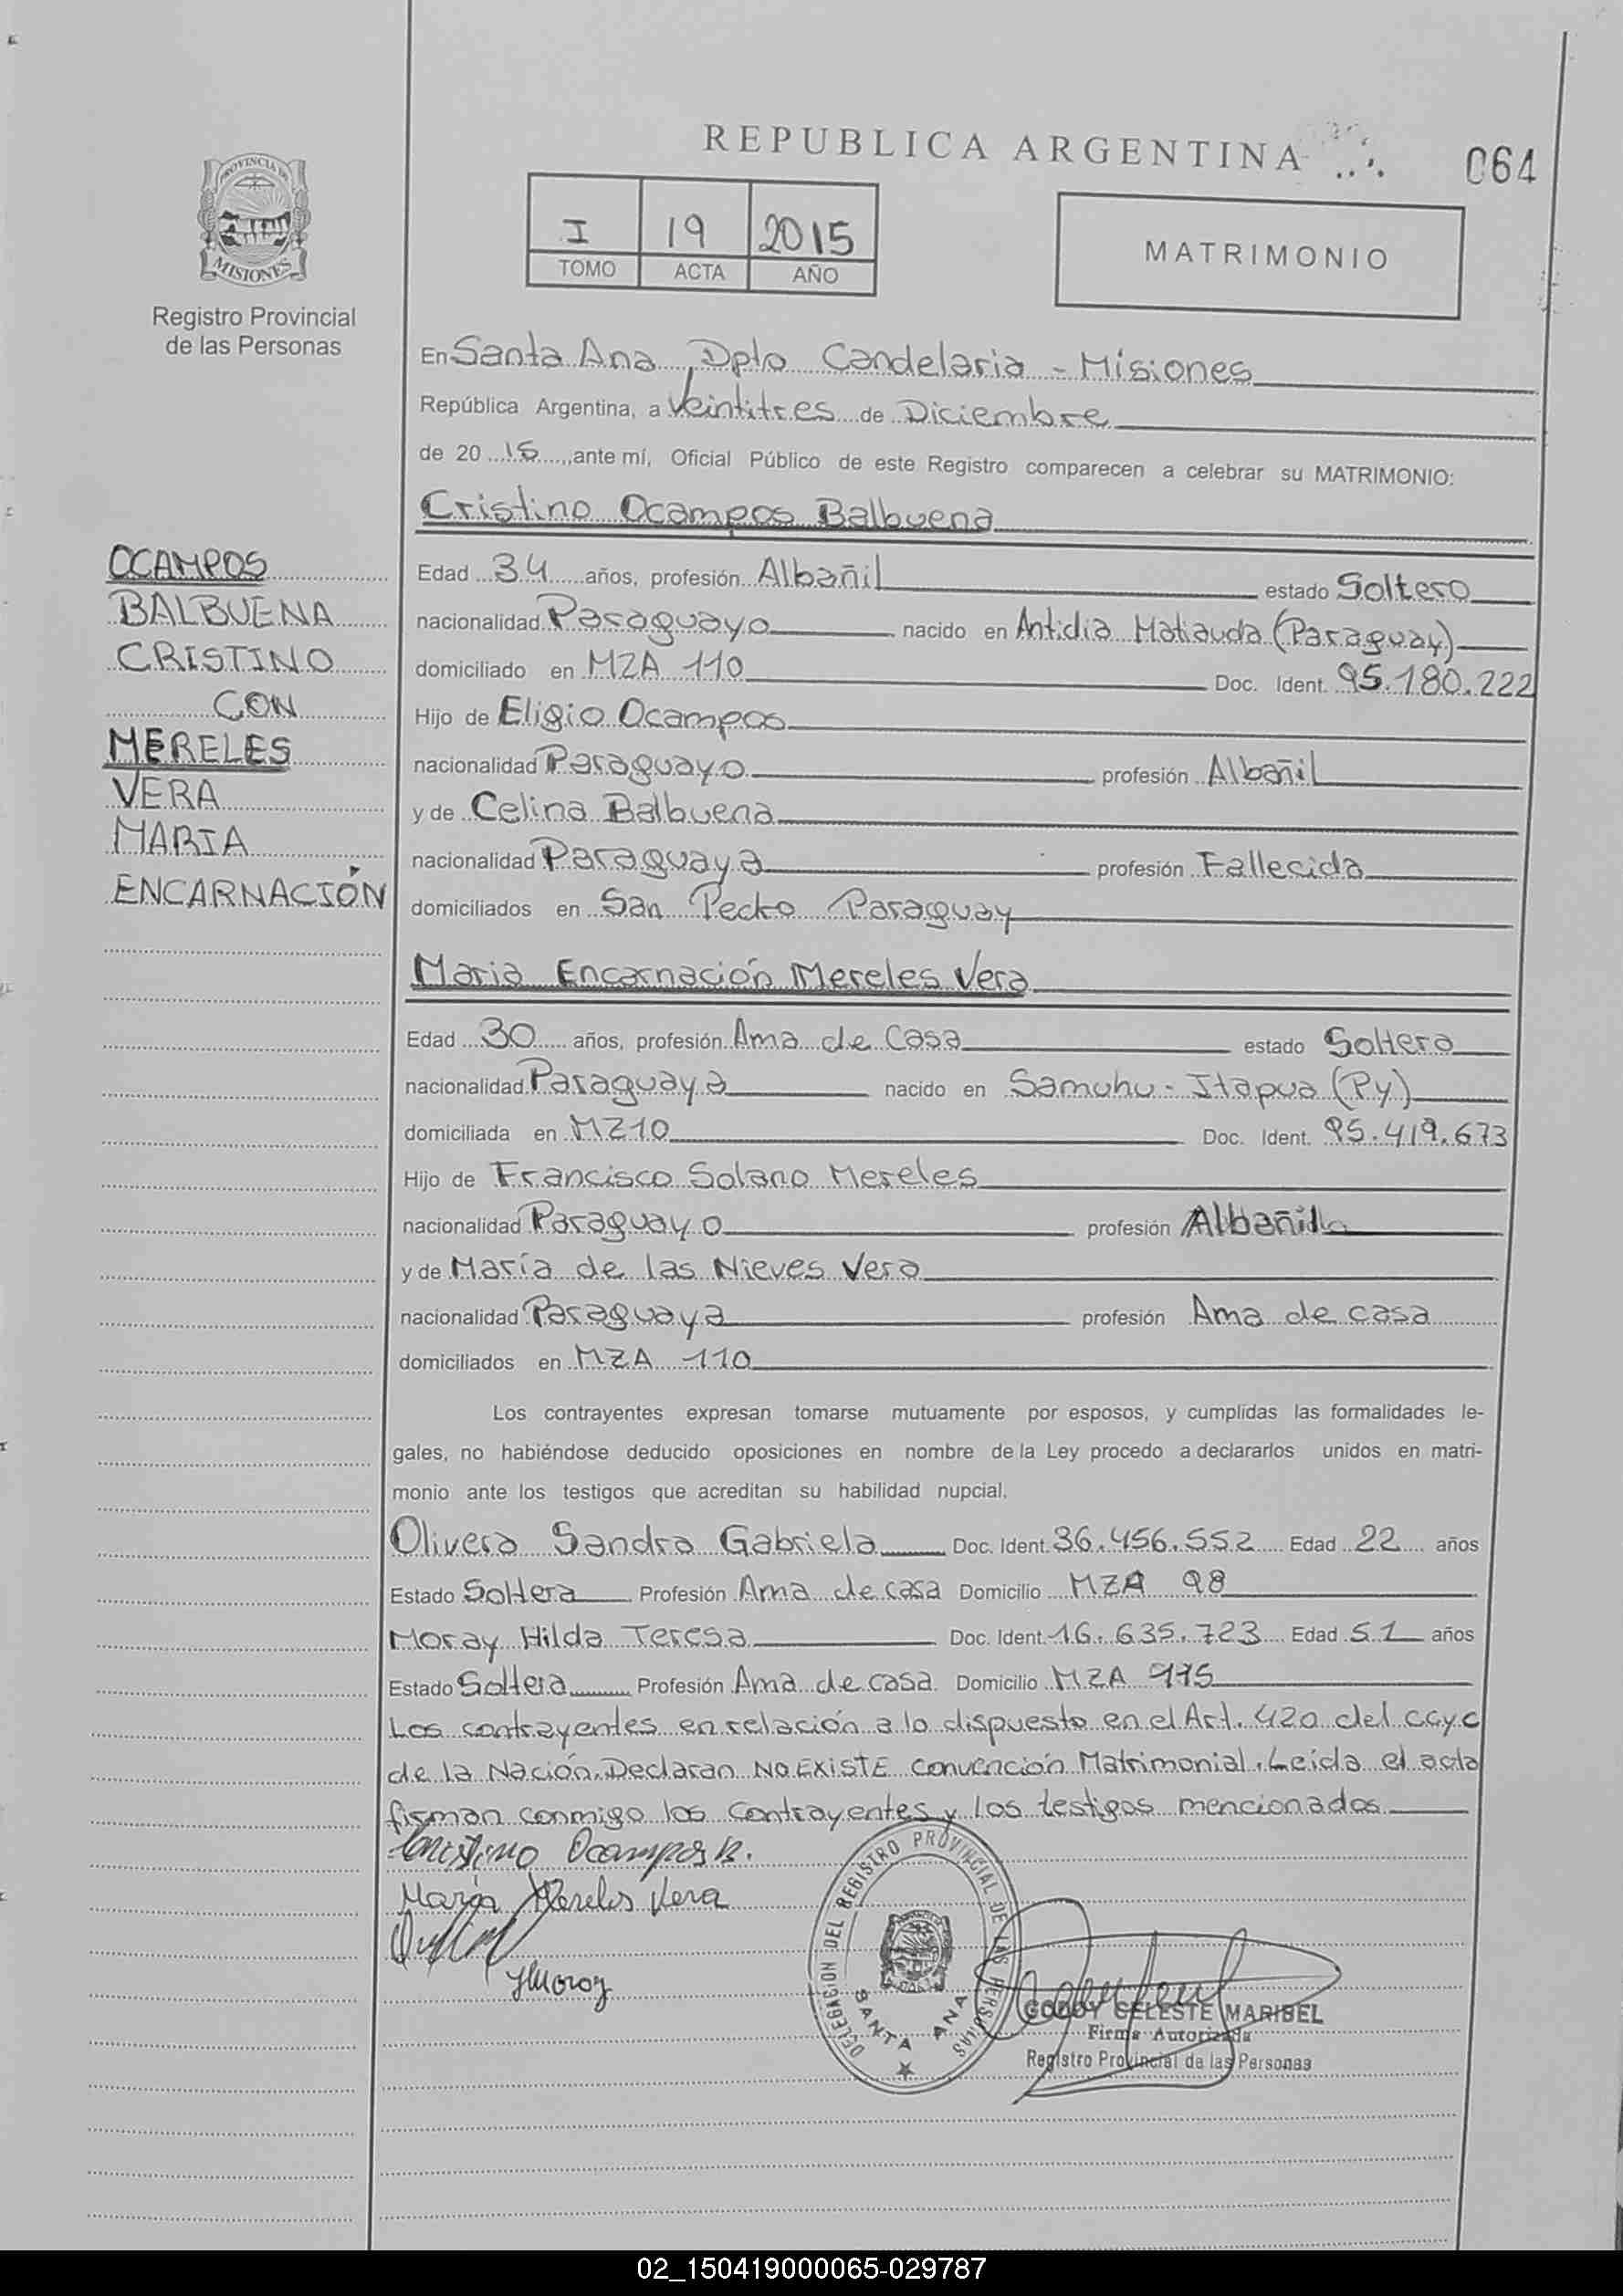 REPUBLICA ARGENTINA
064
PROVINCIA DE
MISIONES
Registro Provincial
de las Personas
I 19 2015
TOMO ACTA AÑO
MATRIMONIO
En Santa Ana, Dpto Candelaria - Misiones
República Argentina, a Veintitres de Diciembre
de 20 15, ante mí, Oficial Público de este Registro comparecen a celebrar su MATRIMONIO:
Cristino Ocampos Balbuena
OCAMPOS
BALBUENA
CRISTINO
CON
MERELES
VERA
MARIA
ENCARNACIÓN
Edad 34 años, profesión Albañil estado Soltero
nacionalidad Paraguayo nacido en Antidia Matiauda (Paraguay)
domiciliado en MZA 110 Doc. Ident. 95.180.222
Hijo de Eligio Ocampos
nacionalidad Paraguayo profesión Albañil
y de Celina Balbuena
nacionalidad Paraguaya profesión Fallecida
domiciliados en San Pedro Paraguay
Maria Encarnación Mereles Vera
Edad 30 años, profesión Ama de Casa estado Soltera
nacionalidad Paraguaya nacido en Samuhu - Itapua (Py)
domiciliada en MZ10 Doc. Ident. 95.419.673
Hijo de Francisco Solano Mereles
nacionalidad Paraguayo profesión Albañil
y de María de las Nieves Vera
nacionalidad Paraguaya profesión Ama de casa
domiciliados en MZA 110
Los contrayentes expresan tomarse mutuamente por esposos, y cumplidas las formalidades le-
gales, no habiéndose deducido oposiciones en nombre de la Ley procedo a declararlos unidos en matri-
monio ante los testigos que acreditan su habilidad nupcial.
Olivera Sandra Gabriela Doc. Ident. 36.456.552 Edad 22 años
Estado Soltera Profesión Ama de casa Domicilio MZA 98
Moray Hilda Teresa Doc. Ident. 16.635.723 Edad 51 años
Estado Soltera Profesión Ama de casa Domicilio MZA 115
Los contrayentes en relación a lo dispuesto en el Art. 420 del CCyC
de la Nación. Declaran NO EXISTE Convención Matrimonial. Leida el acta
firman conmigo los Contrayentes y los testigos mencionados
Cristino Ocampos B.
Maria Mereles Vera
HMoray
DELEGACION DEL REGISTRO PROVINCIAL DE LAS PERSONAS
SANTA ANA
GODOY CELESTE MARIBEL
Firma Autorizada
Registro Provincial de las Personas
02_150419000065-029787